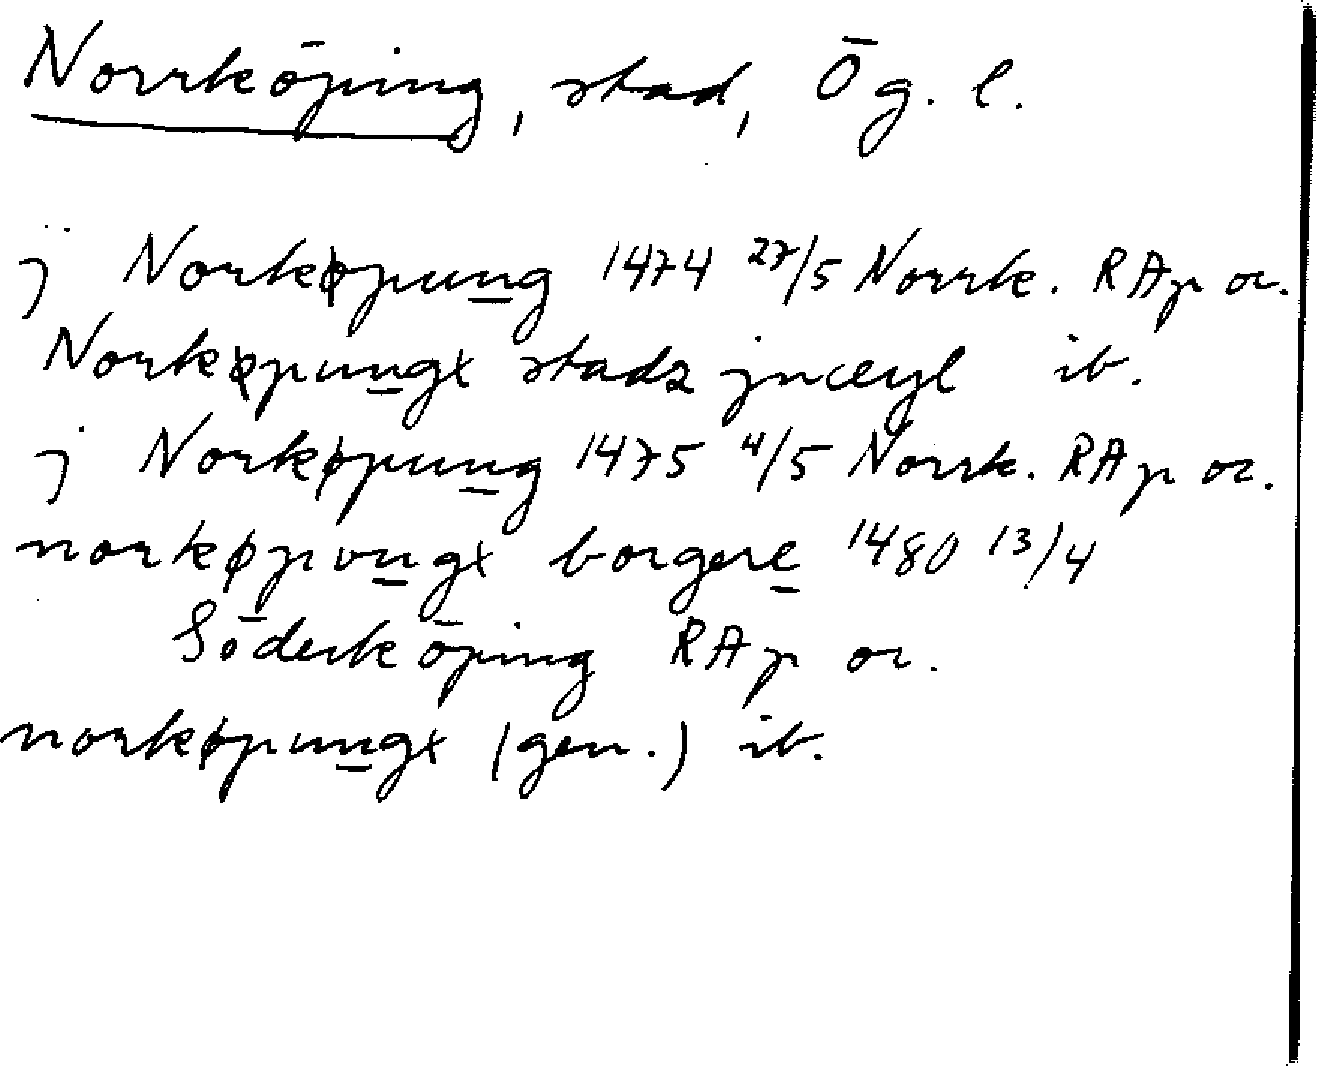 Norrköping, stad, Ög. l.
j Norkøpung 1474 27/5 Norrk. RAp or.
Norkøpungx stadz jnceyl ib.
j Norkøpung 1475 4/5 Norrk. RAp or.
norkøpvngx borgere 1480 13/4
Söderköping RAp or.
norkøpungx (gen.) ib.